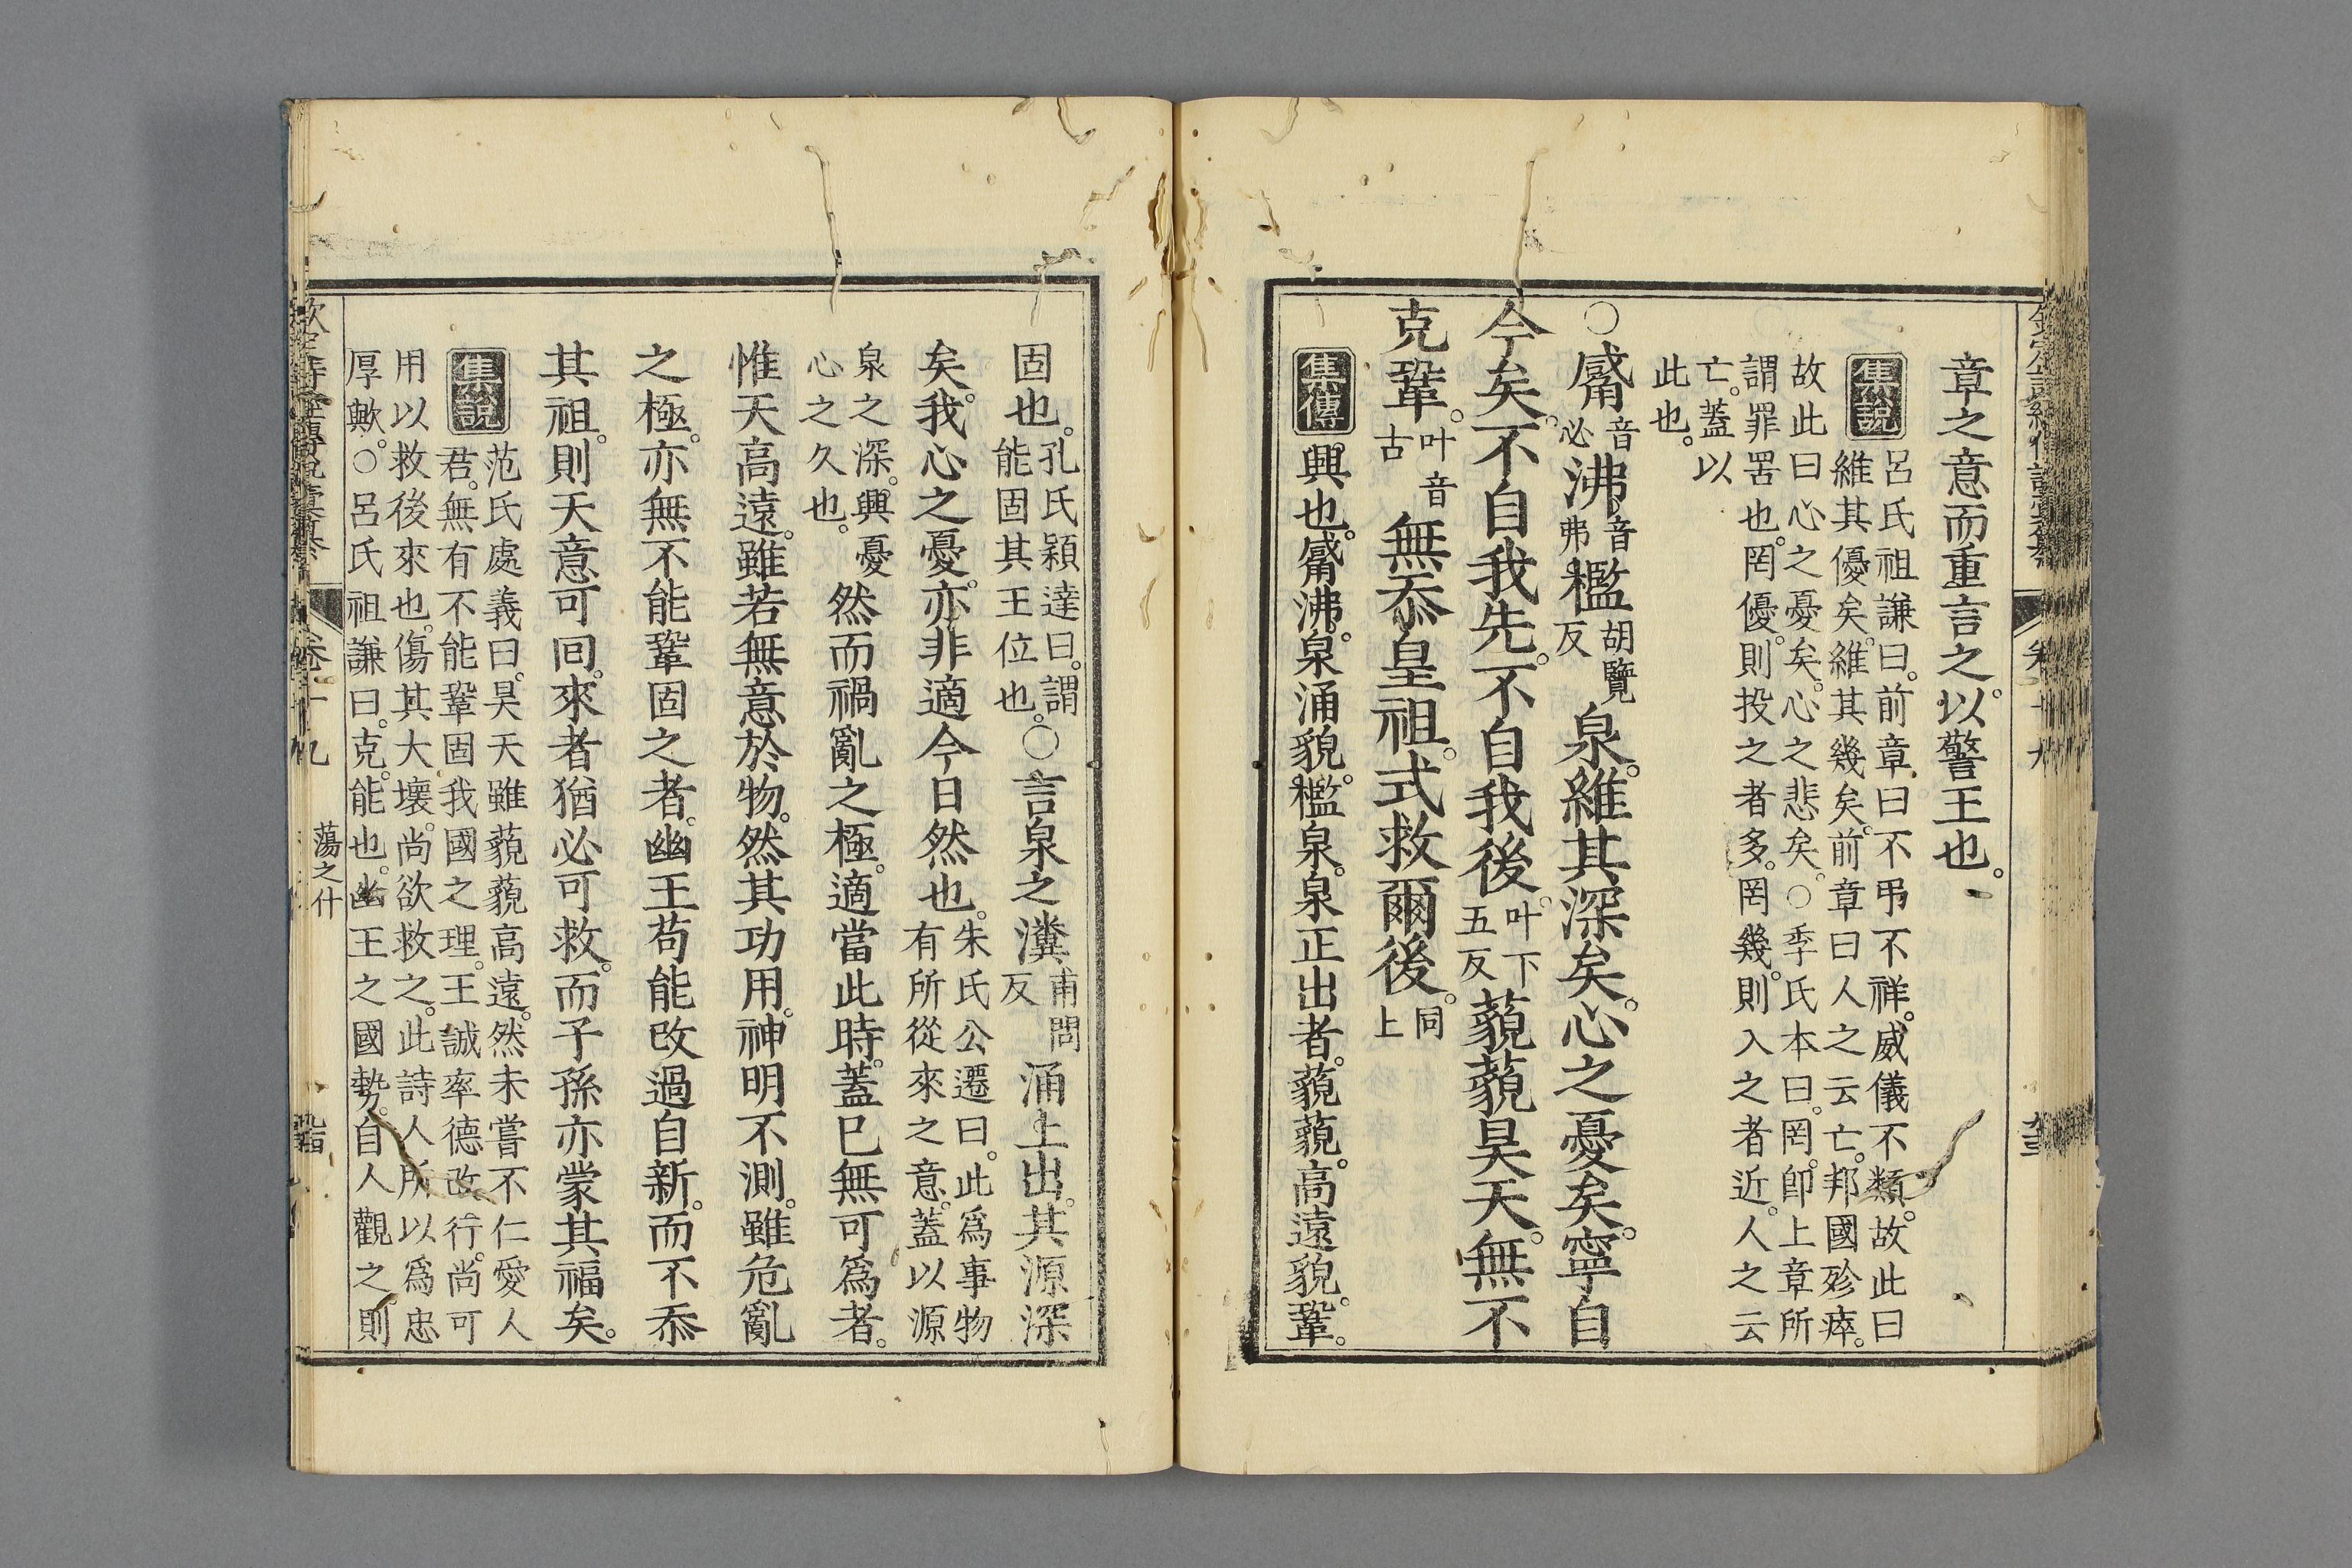 章之意而重言之。以警王也。
集說
呂氏祖謙曰。前章曰不弔不祥。威儀不類。故此曰
維其優矣。維其幾矣。前章曰人之云亡。邦國殄瘁。
故此曰心之憂矣。心之悲矣。○季氏本曰。罔。卽上章所
謂罪罟也。罔優。則投之者多。罔幾。則入之者近。人之云
亡。蓋以
此也。
○觱音必沸音弗檻胡覽反泉。維其深矣。心之憂矣。寧自
今矣。不自我先。不自我後。叶下五反藐藐昊天。無不
克鞏。叶音古無忝皇祖。式救爾後。同上
集傳興也。觱沸。泉涌貌。檻泉。泉正出者。藐藐。高遠貌。鞏。
固也。孔氏穎達曰。謂能固其王位也。○言泉之瀵甫問反涌上出。其源深
矣。我心之憂。亦非適今日然也。朱氏公遷曰。此爲事物有所從來之意。蓋以源
泉之深。興憂心之久也。然而禍亂之極。適當此時。蓋已無可爲者。
惟天高遠。雖若無意於物。然其功用。神明不測。雖危亂
之極。亦無不能鞏固之者。幽王苟能改過自新。而不忝
其祖。則天意可回。來者猶必可救。而子孫亦蒙其福矣。
集說
范氏處義曰。昊天雖藐藐高遠。然未嘗不仁愛人
君。無有不能鞏固我國之理。王誠率德改行。尚可
用以救後來也。傷其大壞。尚欲救之。此詩人所以爲忠
厚歟。○呂氏祖謙曰。克。能也。幽王之國勢。自人觀之。則
蕩之什